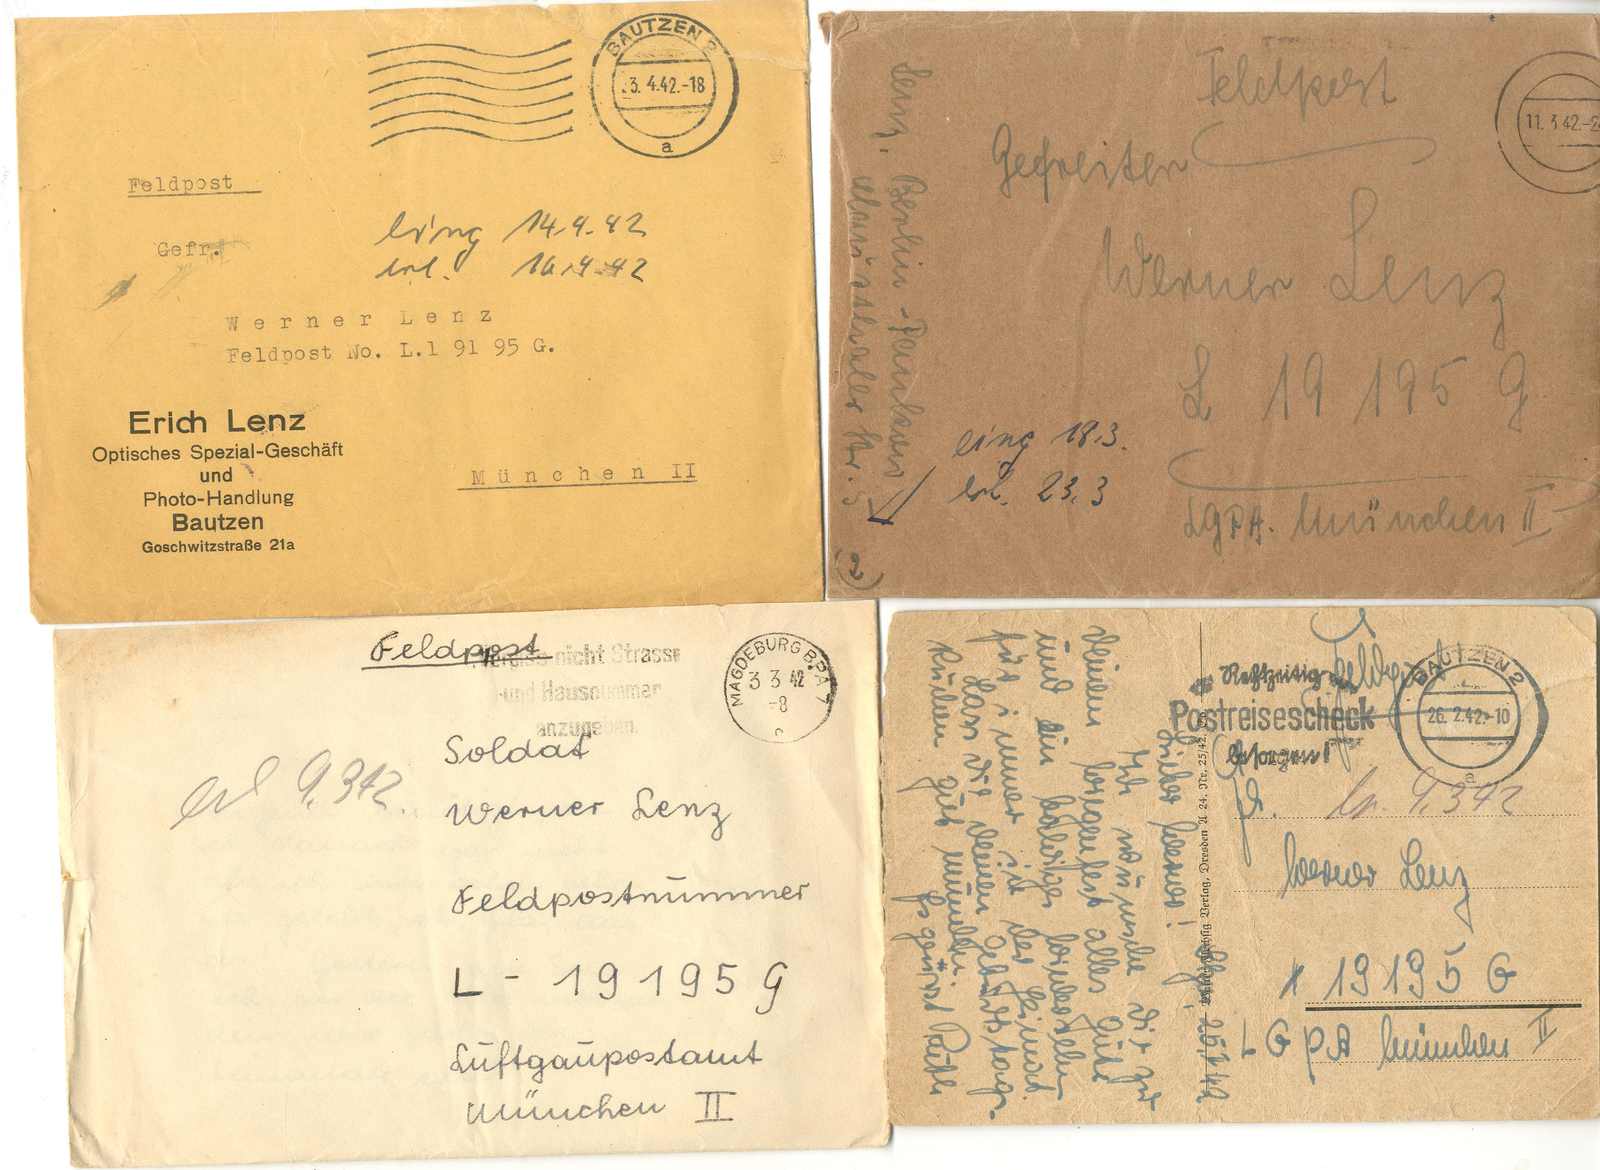 BAUTZEN 2
3.4.42.-18
a
Feldpost
Gefr.
eing 14.4.42
erl. 16.4.42
Werner Lenz
Feldpost No. L.1 91 95 G.
Erich Lenz
Optisches Spezial-Geschäft
und
Photo-Handlung
Bautzen
Goschwitzstraße 21a
München II
Feldpost
11.3.42.-2
Gefreiter
Werner Lenz
L 19 195 G
LGPA. München II
Lenz,
Berlin-Pankow
Str. 5
eing 18.3.
erl. 23.3
2
Feldpost
nicht Strasse
und Hausnummer
anzugeben.
MAGDEBURG BPA 7
3 3 42
-8
c
erl 9.3 42.
Soldat
Werner Lenz
Feldpostnummer
L - 19195 G
Luftgaupostamt
München II
Rechtzeitig
Postreisescheck
besorgen!
Feldpost
BAUTZEN 2
26.2.42.-10
a
9.3 42
Werner Lenz
19195 G
LGPA München II
Verlag, Dresden A 24. Nr. 25/42
Lieber Werner!
Ich wünsche Dir zu
Deinem Wiegenfest alles Gute
und ein baldiges Wiedersehn
für immer in der Heimat.
Lass Dir Deinen Geburtstags-
kuchen gut munden.
Es grüßt